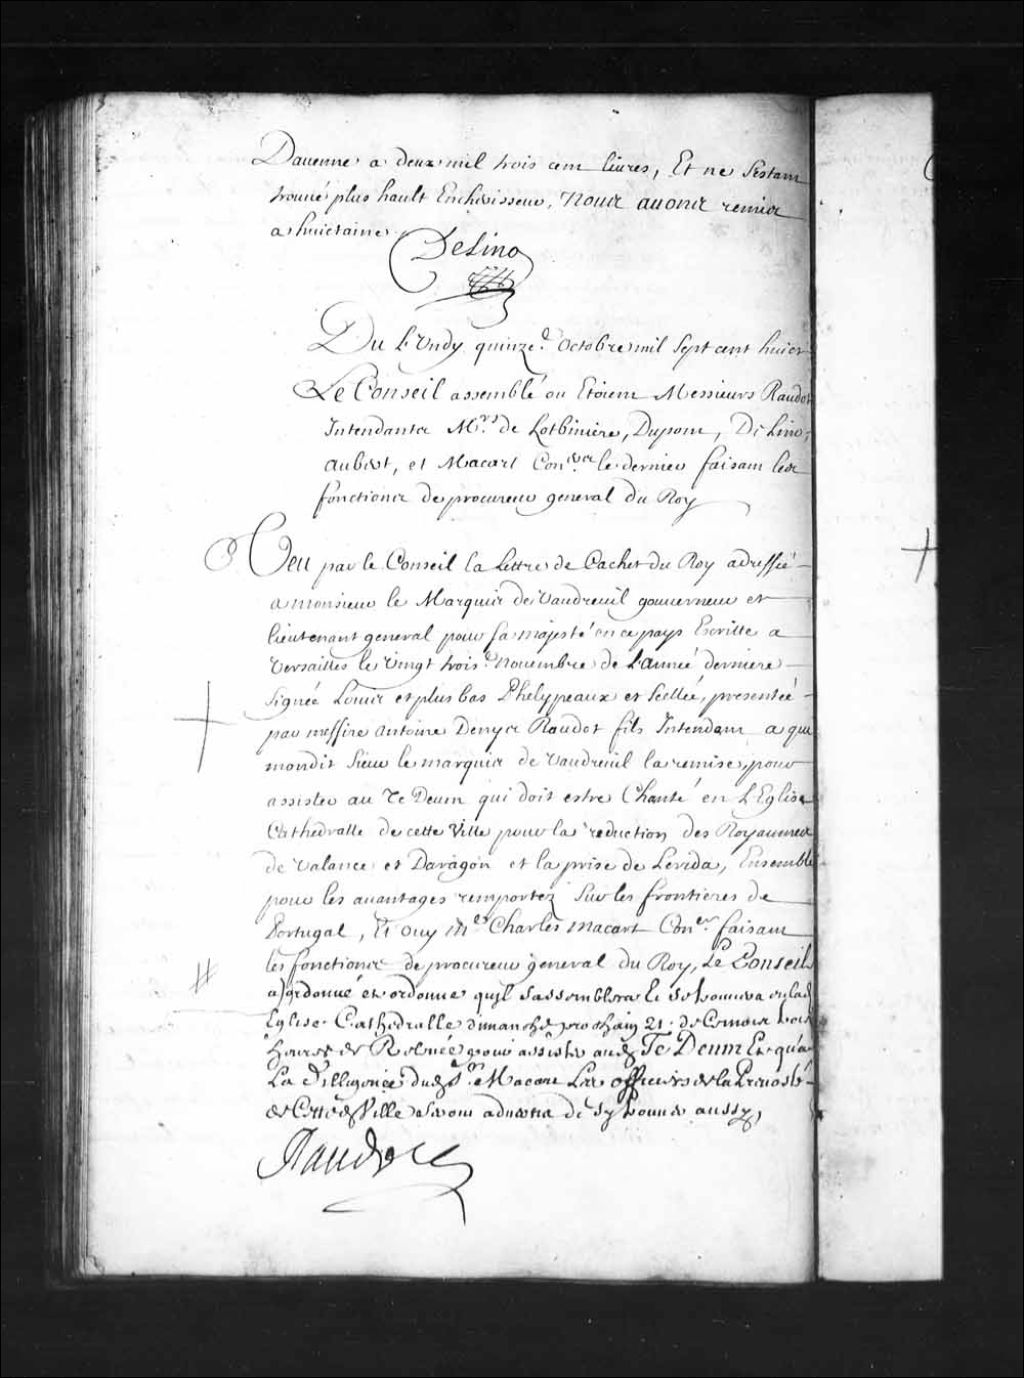 Dauenne a deux mil trois cent liures, Et ne sestant
trouué plus hault Encherisseur, Nous auons remis
a huictaine.
Delino
Du Lundy quinze.e octobre mil sept cent huict
Le Conseil assemblé ou Etoient Messieurs Raudot
Intendants Mrs. de Lotbiniere, Dupont, De Lino,
aubert, et Macart Con.ers le dernier faisant les
fonctions de procureur general du Roy
Veu par le Conseil la Lettre de Cachet du Roy adressée
a monsieur le Marquis de Vaudreuil gouuerneur et
lieutenant general pour sa majesté en ce pays Escritte a
Versailles le Vingt trois.e nouembre de l'année derniere
signée Louis et plus bas Phelypeaux et scellée, presentée
par messire antoine Denys Raudot fils Intendant a qui
mondit sieur le marquis de Vaudreuil la remise, pour
assister au Te Deum qui doit estre Chanté en L'Eglise
Cathedralle de cette Ville pour la reduction des Royaumes
de Valance et Daragon et la prise de Lerida, Ensemble
pour les auantages remportez sur les frontieres de
Portugal, Et ouy Me. Charles macart Con.er faisant
les fonctions de procureur general du Roy, Le Conseil
a ordonné et ordonne quil sassemblera Et se trouuera en lad
Eglise Cathedralle dimanche prochain 21. de Ce mois trois
heures de Releuée pour assister aud Te Deum Et qu'a
La dilligence dud s.r Macart Les officiers de la Preuosté
de Cette Ville seront aduertis de sy trouuer aussy,
Raudot